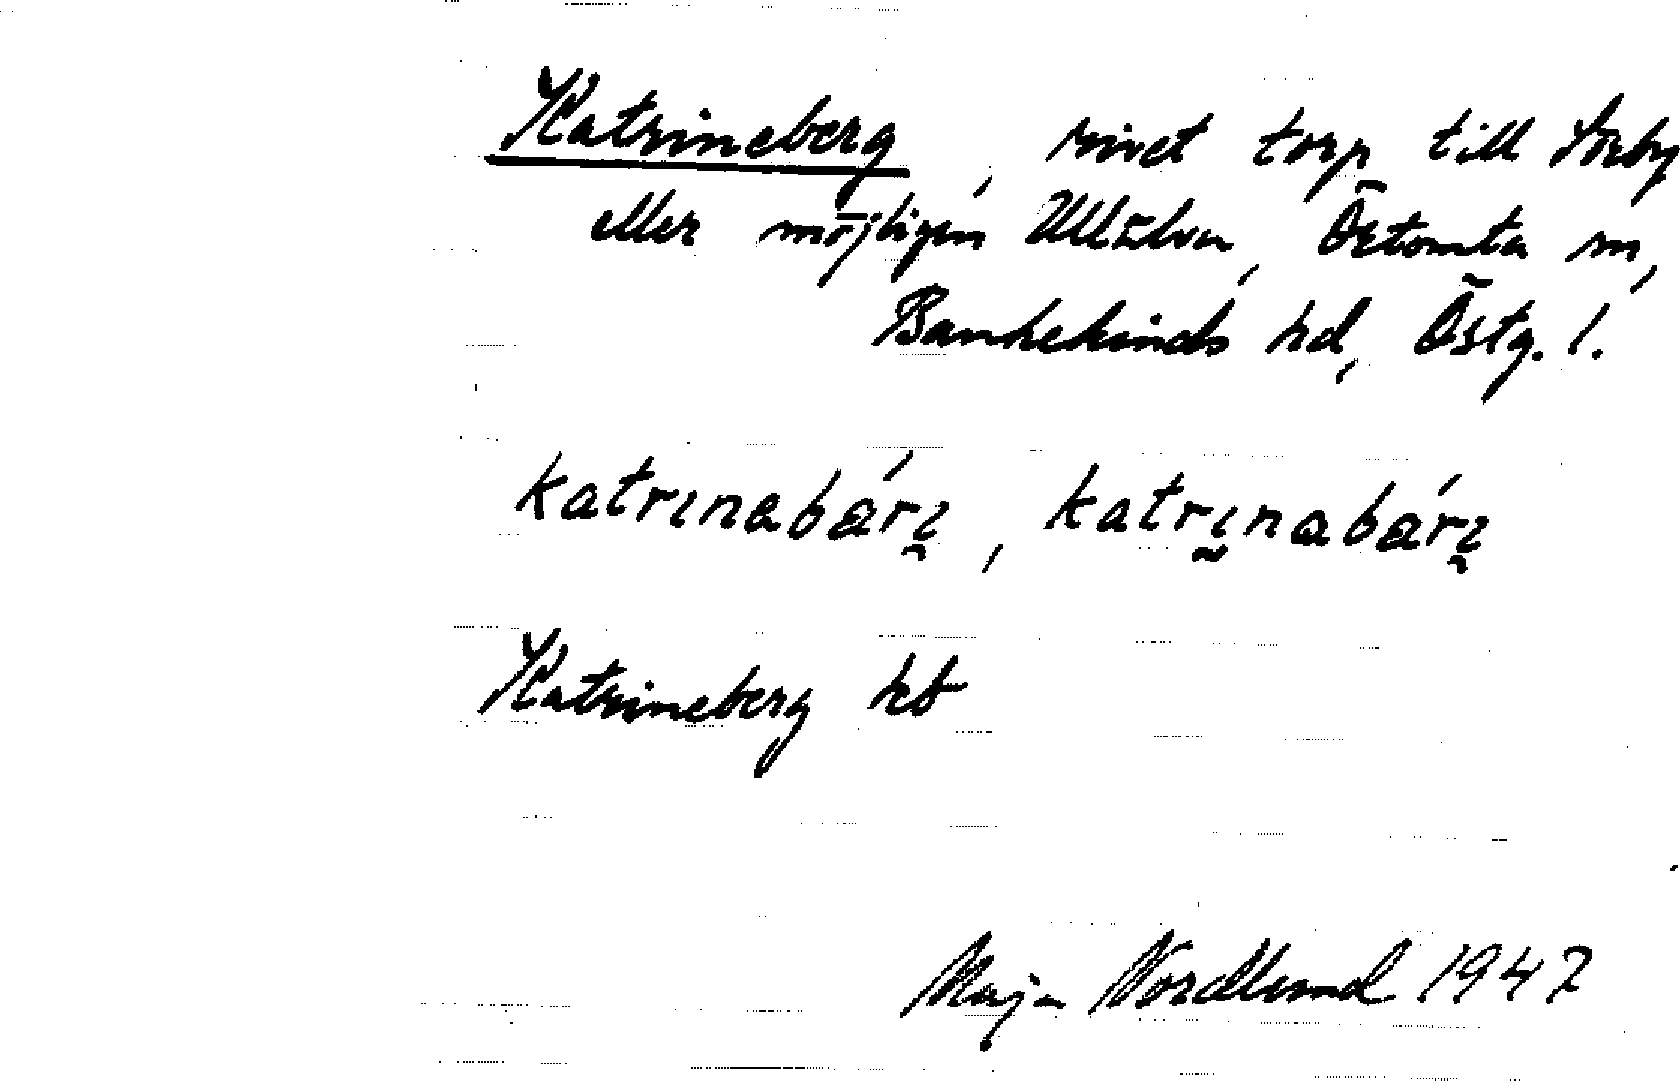 Katrineberg, rivet torp till Sörby
eller möjligen Ullälva, Örtomta sn,
Bankekinds hd, Östg. l.
katrınabárı̯, katrı̯nabárı̯
Katrineberg kb
Maja Nordlund 1947